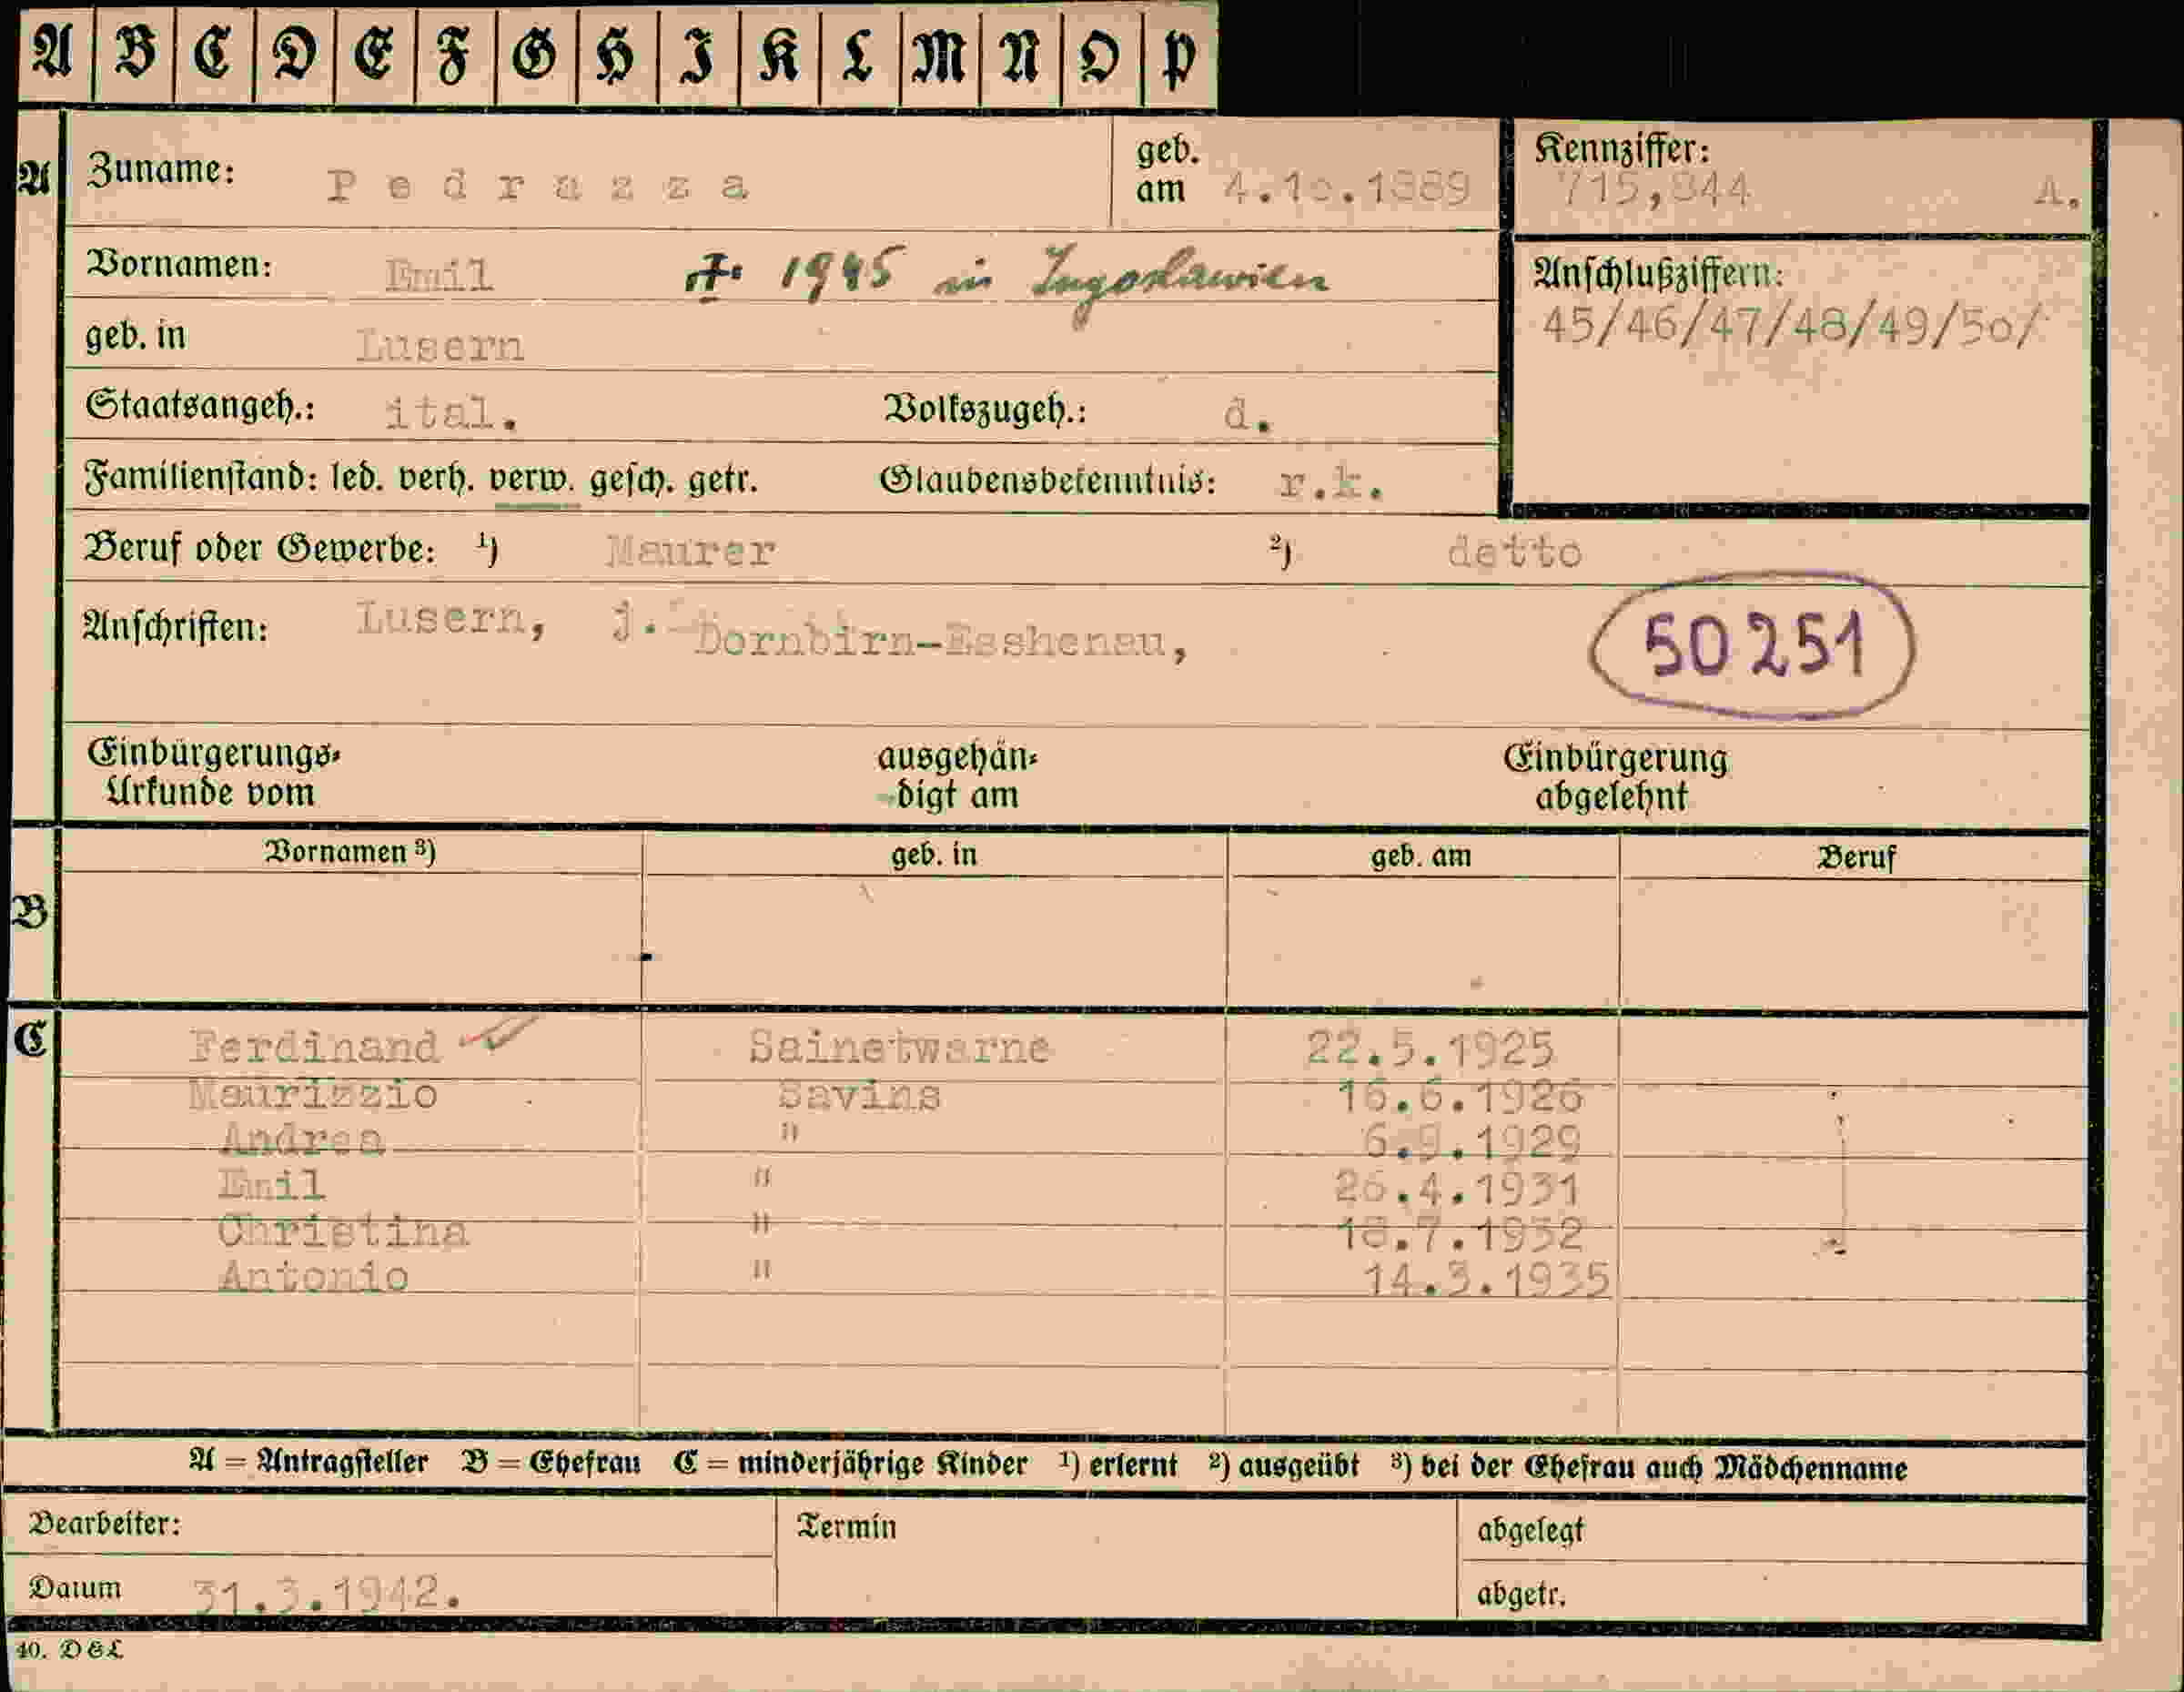 A B C D E F G H I K L M N O P
A Zuname: Pedrazza geb. am 4.10.1889 Kennziffer: 715,844 A.
Vornamen: Emil 1945 in Jugoslawien Anschlußziffern:
45/46/47/48/49/50/
geb. in Lusern
Staatsangeh.: ital. Volkszugeh.: d.
Familienstand: led. verh. verw. gesch. getr. Glaubensbekenntnis: r.k.
Beruf oder Gewerbe: 1) Maurer 2) detto
Anschriften: Lusern, j. Dornbirn-Esshenau,
50251
Einbürgerungs- ausgehän- Einbürgerung
Urkunde vom digt am abgelehnt
Vornamen 3) geb. in geb. am Beruf
B
C Ferdinand Sainetwarne 22.5.1925
Maurizzio Savins 16.6.1926
Andrea " 6.9.1929
Emil " 26.4.1931
Christina " 18.7.1932
Antonio " 14.3.1935
A = Antragsteller B = Ehefrau C = minderjährige Kinder 1) erlernt 2) ausgeübt 3) bei der Ehefrau auch Mädchenname
Bearbeiter: Termin abgelegt
Datum 31.3.1942. abgetr.
40. D&L